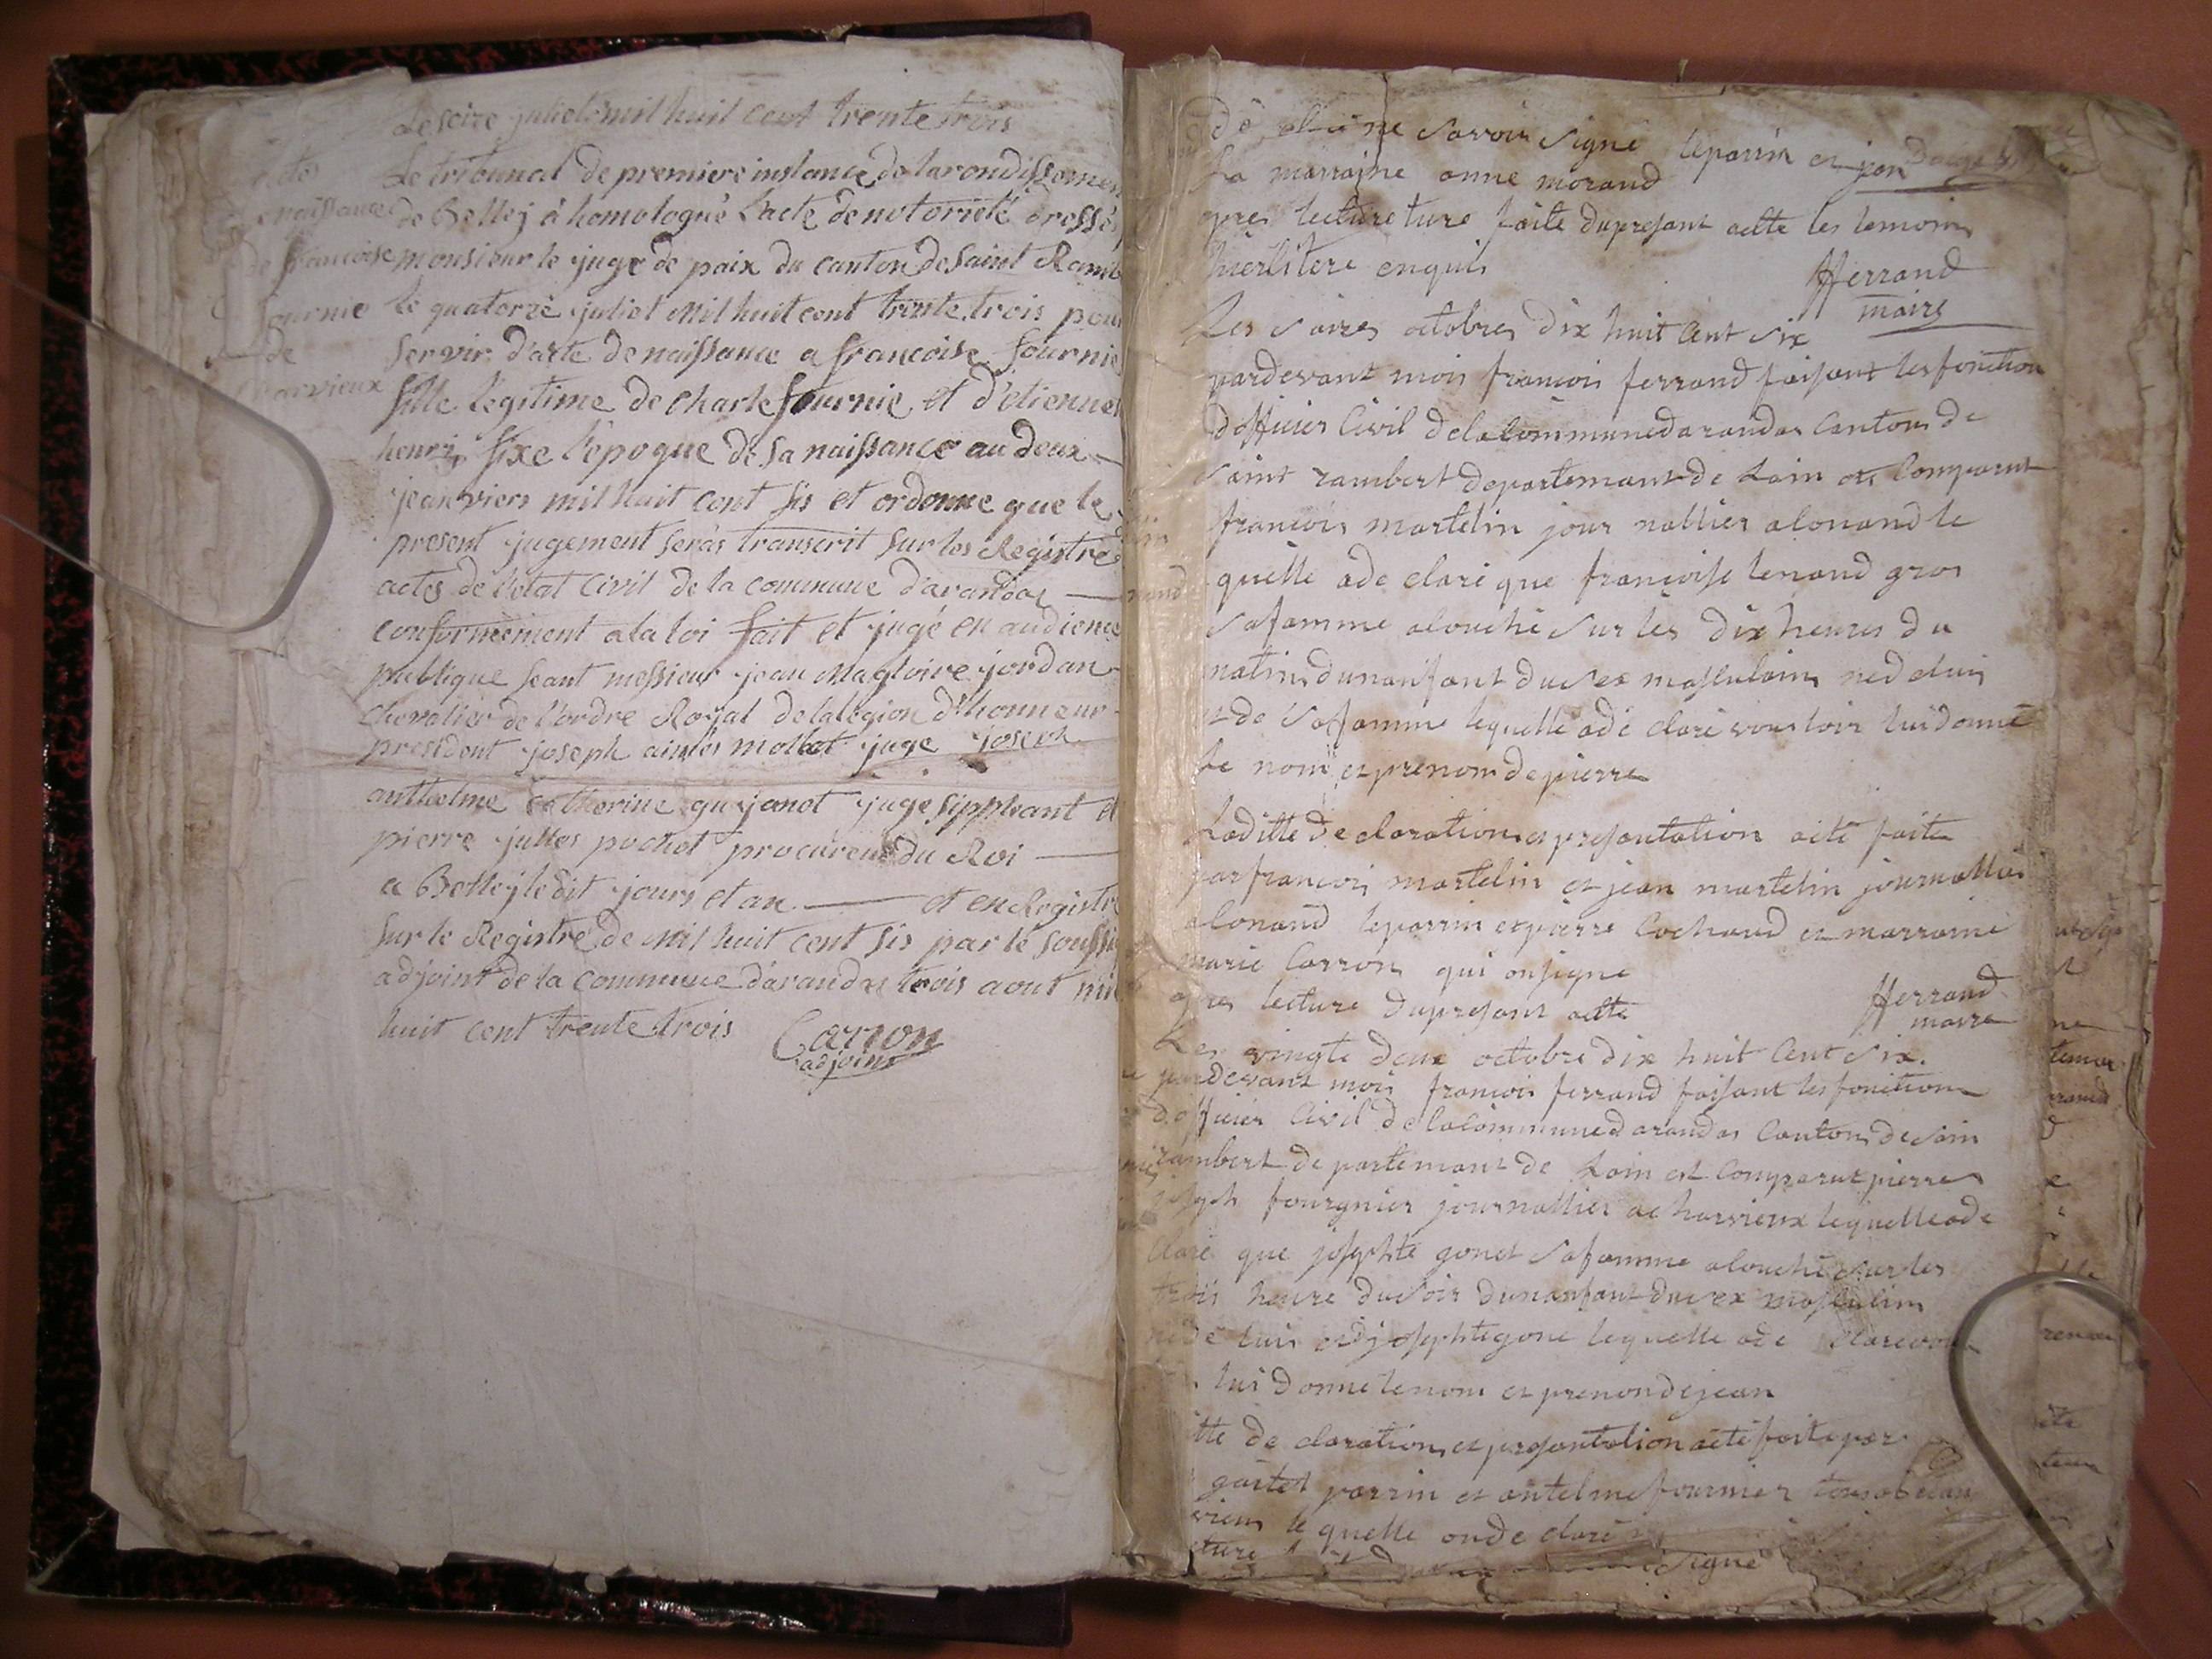 Le seize juliet mil huit cent trente trois
acte
naissance
de francoise
fournie
de
charvieux
Le tribunal de premiere instance de larondissemen
de Belley à homologué l'acte de notorieté dressé
monsieur le juge de paix du canton de saint Ramb
le quatorze juliet mil huit cent trente trois pour
servir d'acte de naissance a francoise fournie
fille légitime de charle fournie et d'etienne
henri, fixe l'époque de sa naissance au deux
jeanviers mil huit cent sis et ordonne que le
present jugement seràs transcrit sur les Registre
actes de l'etat civil de la commune d'arandas
conformement a la loi fait et jugé en audience
publique seant messieur jean Magloire jordan
chevalier de l'ordre Royal de la légion d'honneur
president joseph mollet juge joseph
anthelme catherine gujonot juge sippleant et
pierre julles pochet procureur du Roi
a Belley le dit jours et an et en Registre
sur le Registre de mil huit cent sis par le soussi
adjoint de la commune d'arandas trois aout mil
huit cent trente trois
Carron
adjoint
ne savoir signé le parrin et jean
La marraine anne morand
apres lecture ture faite du presant actte les temoins
enquis
fferrand
maire
Les saires octobres dix huit cent six
pardevant mois francois ferrand faisant les fonction
dofficier Civil de la commune darandas Canton de
saint rambert departemant de Lain et comparut
francois martelin jour nallier alonand le
quelle ade claré que françoise lenand gros
safamme a louché sur les dix heures du
matin dunanfant du sex massulain ned eluis
et de safamme lequelle adé claré vousloir luidonné
le nom et prenom de pierre
Laditte de claration et presantation aété faite
par francois martelin et jean martelin journallier
alonand leparrin et pierre Cochand et marraine
marie Carron qui on signe
apres lecture du presant actte
fferrand
maire
Les vingte deux octobre dix huit cent six
pardevant mois francois ferrand faisant les fonction
dofficier Civil de la commune darandas Canton de sain
rambert departemant de Lain est comparut pierre
joseph fourgnier journallier acharvieux lequelle ade
claré que josephte gonet safamme alouché sur les
trois heure du soir dunanfant du sex massulin
né de luis et de josephte gone lequelle ade claré vou
luis donne le nom et prenon de jean
itte de claration et presantation aété faite par
parrin et antelme fournier
vieux le quelle onde claré
cture
signé